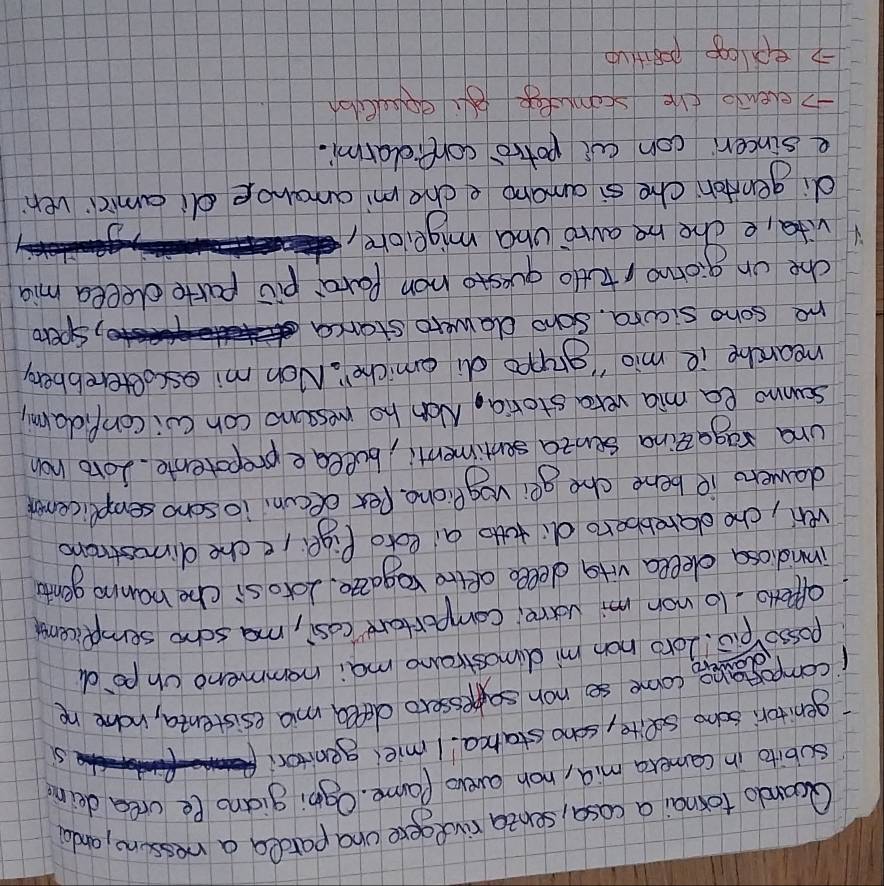 Quando tornai a casa, senza rivolgere una parola a nessuno, andai
subito in camera mia, non avevo fame. Ogni giorno le urla dei miei
genitori sono solite, sono stanca! I miei genitori si
comportano come se non sapessero della mia esistenza, non ne
posso davvero più. Loro non mi dimostrano mai nemmeno un po' di
affetto. Io non mi vorrei comportare così, ma sono semplicemente
invidiosa della vita delle altre ragazze. Loro sì che hanno genitori
veri, che darebbero di tutto ai loro figli, e che dimostrano
davvero il bene che gli vogliono. Per alcuni io sono semplicemente
una ragazzina senza sentimenti, bulla e prepotente. Loro non
sanno la mia vera storia. Non ho nessuno con cui confidarmi,
neanche il mio "gruppo di amiche". Non mi ascolterebbero,
ne sono sicura. Sono davvero stanca, spero
che un giorno, tutto questo non farà più parte della mia
vita, e che ne avrò una migliore,
di genitori che si amano e che mi amano e di amici veri
e sinceri con cui potrò confidarmi.
→ evento che scomvolge gli equilibri
→ epilogo positivo